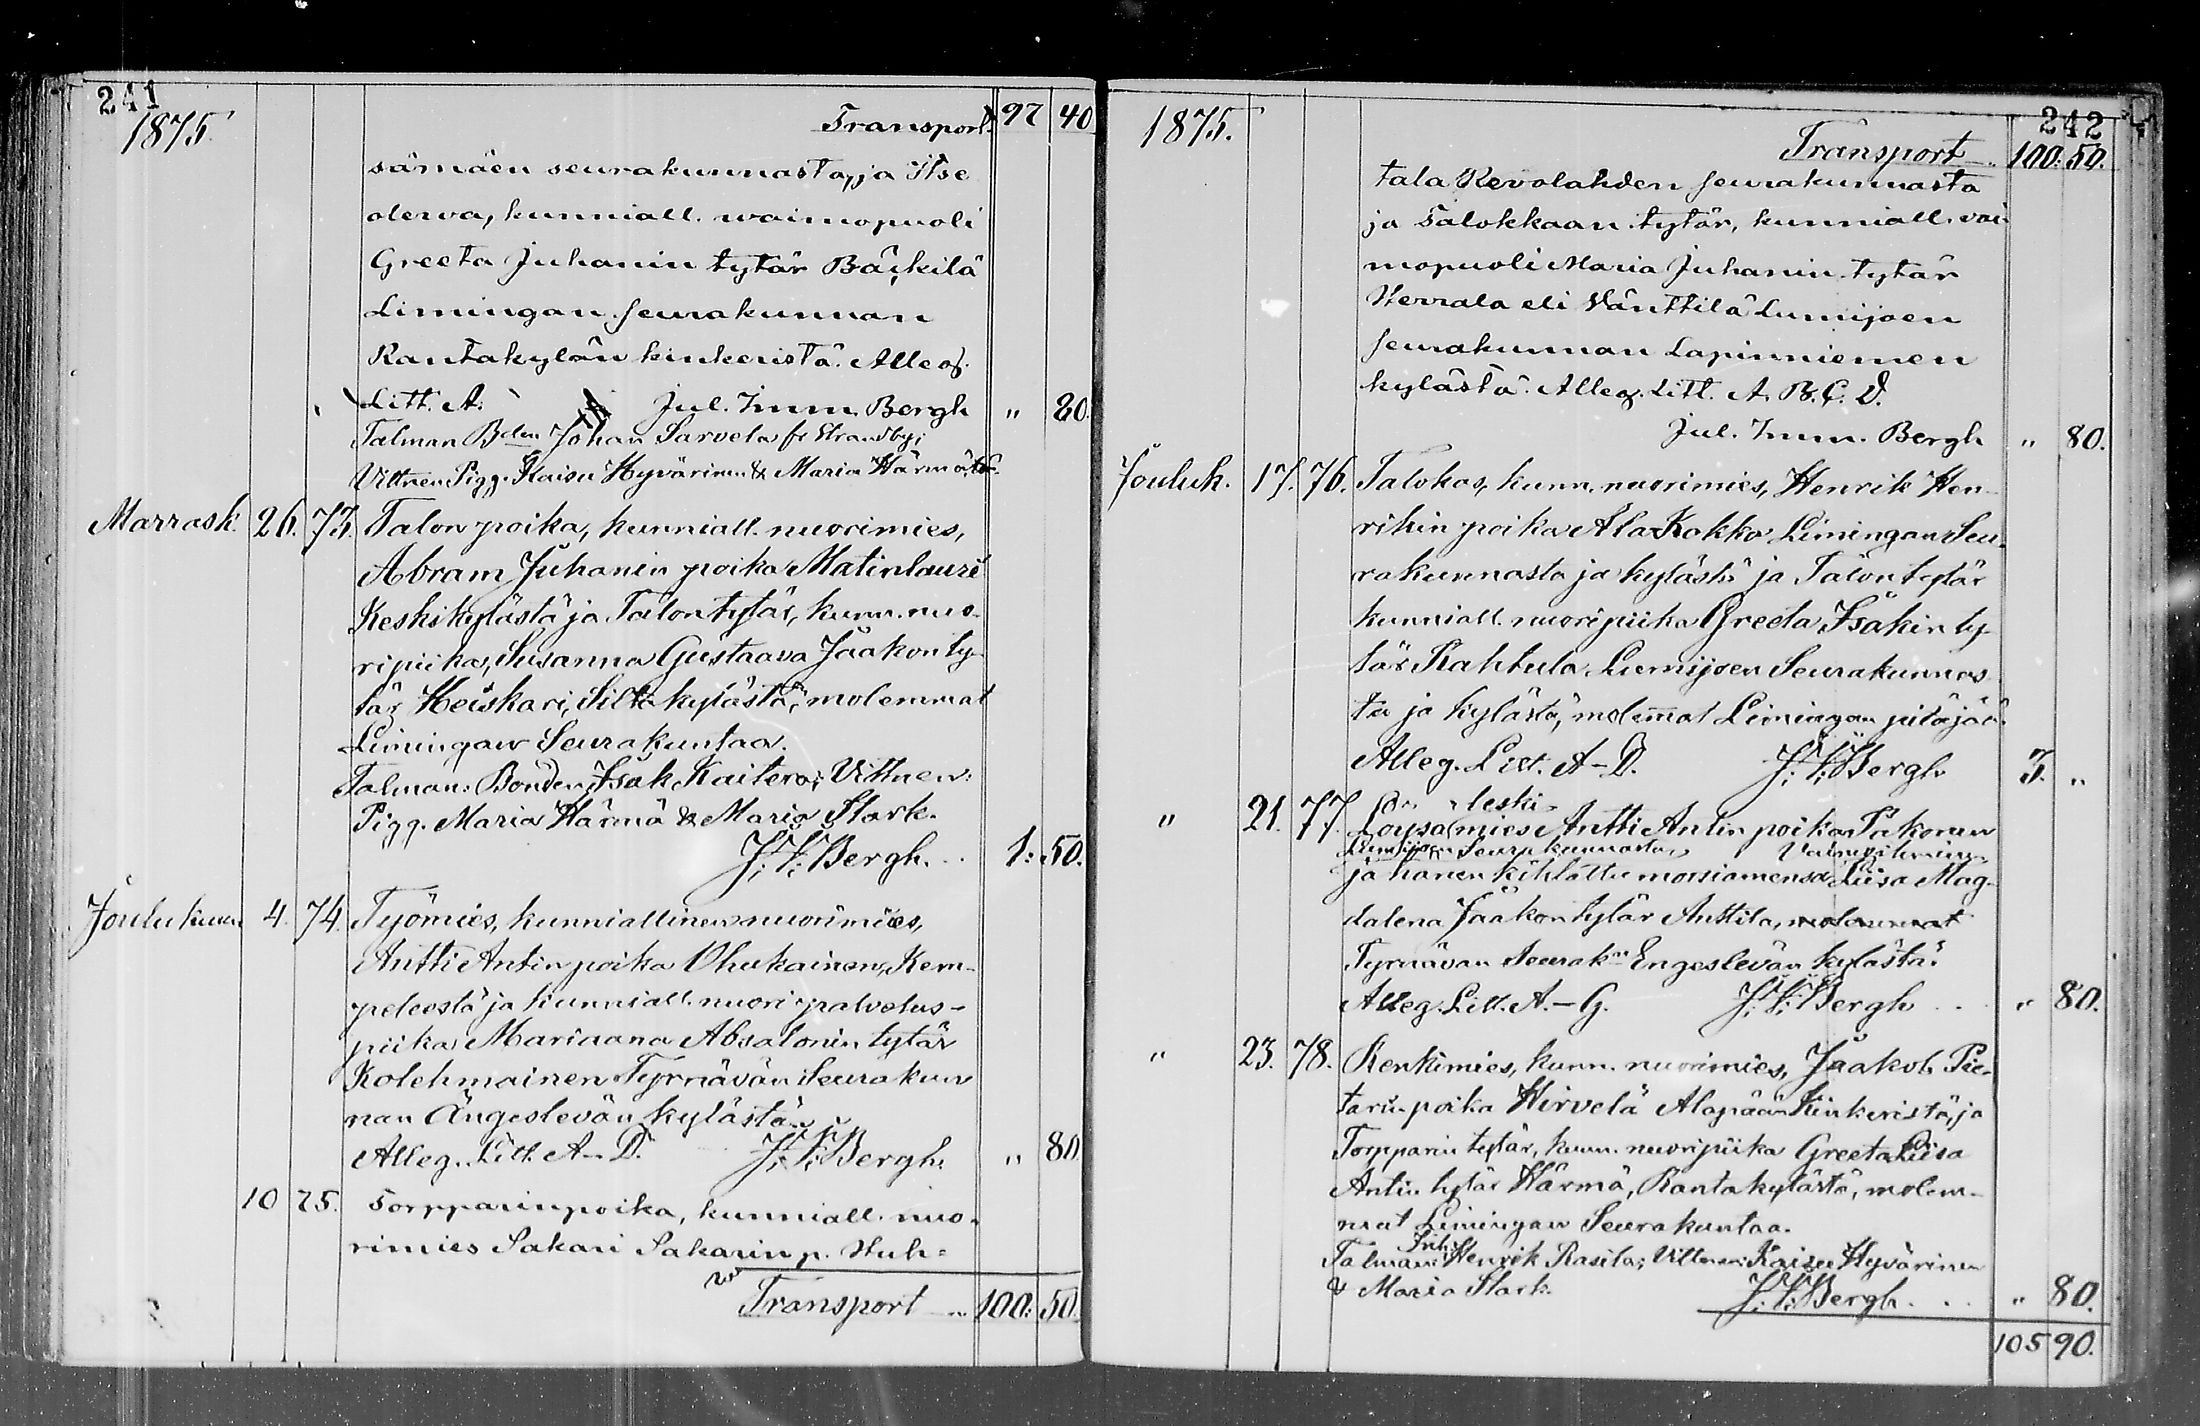 241
1875. Transport. 97 40
sämäen seurakunnasta, ja itse
olewa, kunniall. waimopuoli
Greeta Juhanin tytär Bäckilä
Limingan seurakunnan
Rantakylän kinkeristä. Alleg.
Litt. A. Jul. Imm. Bergh " 80.
Talman Bden Johan Sarvela fr Strandby;
Vittnen Pigg. Kaisa Hyvärinen & Maria Härmä
Marrask. 26. 73. Talon poika, kunniall. nuorimies,
Abram Juhanin poika Matinlauri
Keskikylästä ja Talon tytär, kunn. nuo-
ripiika, Susanna Gustaava Jaakon ty-
tär Heiskari, Silta kylästä, molemmat
Limingan Seurakuntaa.
Talman: Bonden Isak Kaitera; Vittnen:
Pigg. Maria Härmä & Maria Stark.
J. I. Bergh. . . 1: 50.
Joulukuun 4. 74. Työmies, kunniallinen nuorimies,
Antti Antin poika Ohukainen, Kem-
peleestä ja kunniall. nuori palvelus-
piika Mariaana Absalonin tytär
Kolehmainen Tyrnävän Seurakun
nan Ängeslevän kylästä.
Alleg. Litt. A-D. J. I. Bergh. " 80
10 75. Torpparinpoika, kunniall. nuo-
rimies Sakari Sakarin p. Huh-
Transport 100: 50.
242
1875. Transport 100: 50.
tala Revolahden seurakunnasta
ja talokkaan tytär, kunniall. vai
mopuoli Maria Juhanin tytär
Herrala eli Vänttilä Lumijoen
seurakunnan Lapinniemen
kylästä. Alleg. Litt. A. B. C. D.
Jul. Imm. Bergh " 80.
Jouluk. 17. 76. Talokas, kunn. nuorimies, Henrik Hen-
rikin poika AlaKokko Limingan Seu-
rakunnasta ja kylästä ja Talon tytär
kunniall. nuoripiika Greeta Isakin ty-
tär Rahtula Lumijoen Seurakunnas
ta ja kylästä, molemmat Limingan pitäjää.
Alleg. Litt. A-D. J. I. Bergh 3. "
" 21. 77. leski-
Loysämies Antti Antin poika Pakonen
Lumijoen Seurakunnasta, Vaimoihminen
ja hänen kihlattu morsiamensa Liisa Mag-
dalena Jaakon tytär Anttila, molemmat
Tyrnävän Seurakn Engeslevän kylästä.
Alleg. Litt. A.-G. J. I. Bergh . . " 80.
" 23. 78. Renkimies, kunn. nuorimies, Jaakob Pie-
tarin poika Hirvelä Alapään kinkeristä, ja
Torpparin tytär, kunn. nuoripiika Greeta Liisa
Antin tytär Härmä, Rantakylästä, molem-
mat Limingan Seurakuntaa.
Talman: Henrik Rasila; Vittnen: Kaisa Hyvärinen
& Maria Stark. J. I. Bergh. . . " 80.
105 90.